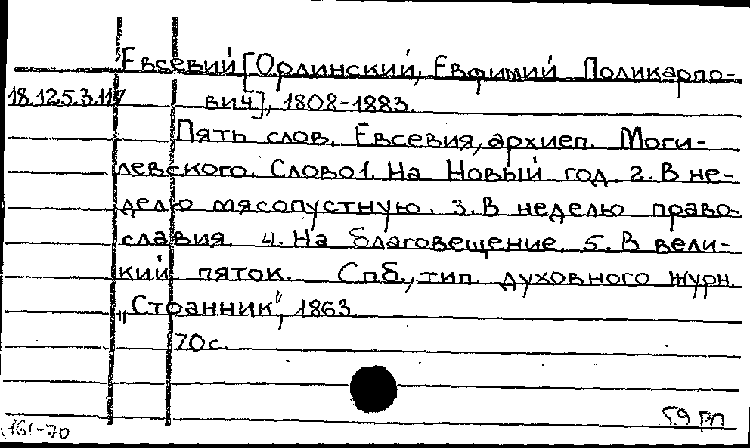 Евсевий [Орлинский, Евфимий Поликарпо-
18.125.3.117 вич], 1808-1883.
Пять слов. Евсевия, архиеп. Моги-
левского. Слово 1. На Новый год. 2. В не-
делю мясопустную. 3. В неделю право-
славия. 4. На Благовещение. 5. В вели-
кий пяток. Спб., тип. духовного журн.
„Странник", 1863.
70 с.
161-70